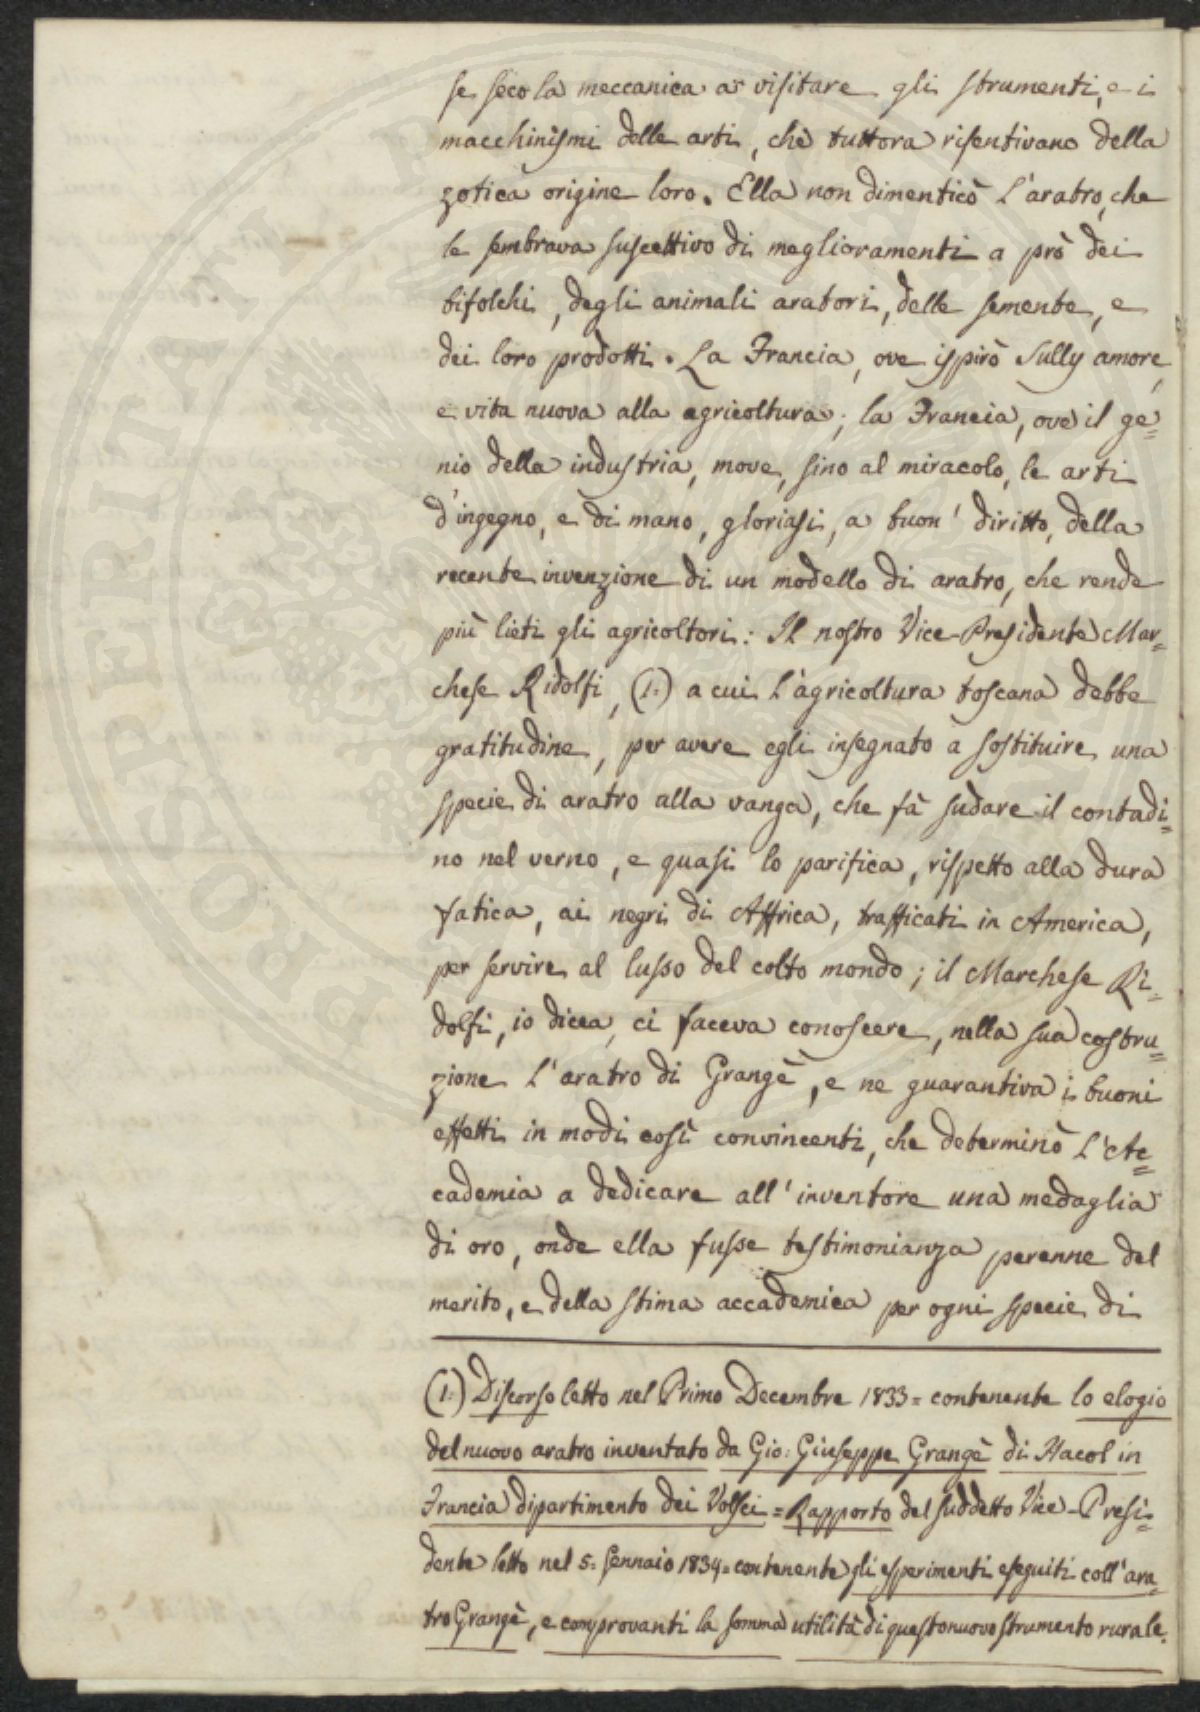 se seco la meccanica a visitare gli strumenti, e i
macchinismi delle arti, che tuttora risentivano della
zotica origine loro. Ella non dimenticò l'aratro, che
le sembrava suscettivo di meglioramenti a prò dei
bifolchi, degli animali aratori, delle semente, e
dei loro prodotti. La Francia, ove ispirò Sully amore,
e vita nuova alla agricoltura; la Francia, ove il ge=
nio della industria, move, sino al miracolo, le arti
d'ingegno, e di mano, gloriasi, a buon' diritto, della
recente invenzione di un modello di aratro, che rende
più lieti gli agricoltori: Il nostro Vice-Presidente Mar=
chese Ridolfi, (1:) a cui l'agricoltura toscana debbe
gratitudine, per avere egli insegnato a sostituire una
specie di aratro alla vanga, che fà sudare il contadi=
no nel verno, e quasi lo parifica, rispetto alla dura
fatica, ai negri di Affrica, trafficati in America,
per servire al lusso del colto mondo; il Marchese Ri=
dolfi, io dicea, ci faceva conoscere, nella sua costru=
zione l'aratro di Grangè, e ne guarantiva i buoni
effetti in modi così convincenti, che determinò l'Ac=
cademia a dedicare all'inventore una medaglia
di oro, onde ella fusse testimonianza perenne del
merito, e della stima accademica per ogni specie di
(1:) Discorso letto nel Primo Decembre 1833 = contenente lo elogio
del nuovo aratro inventato da Gio: Giuseppe Grangè di Hacol in
Francia dipartimento dei Volsci = Rapporto del suddetto Vice-Presi=
dente letto nel 5: Gennaio 1834 = contenente gli esperimenti eseguiti coll'ara=
tro Grangè, e comprovanti la somma utilità di questo nuovo strumento rurale.
PROSPERITATI PUBLICAE